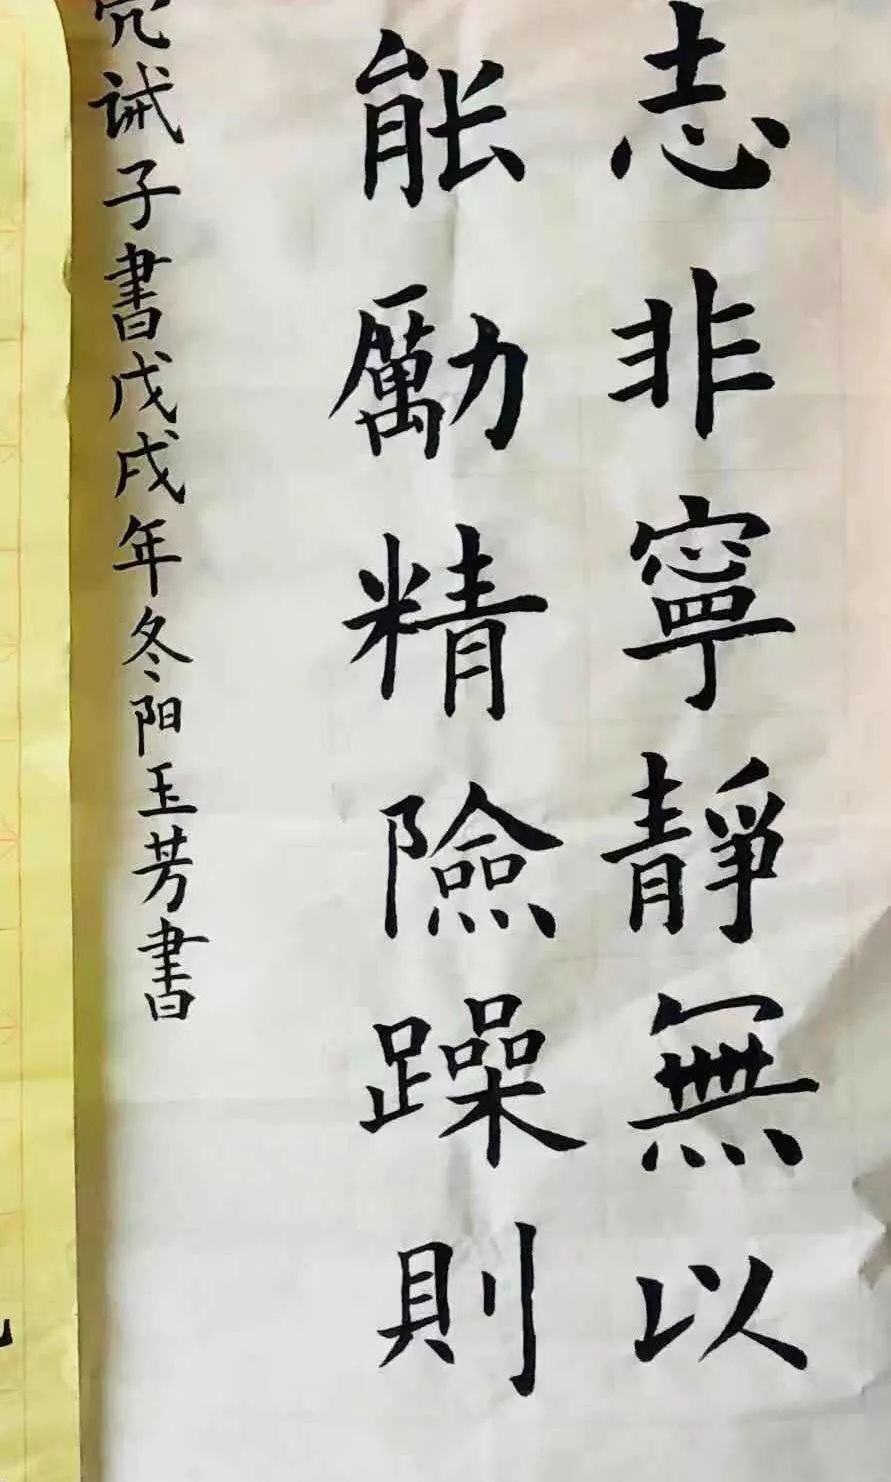 志非寧靜無以
能勵精險躁則
誡子書戊戌年冬阳玉芳書